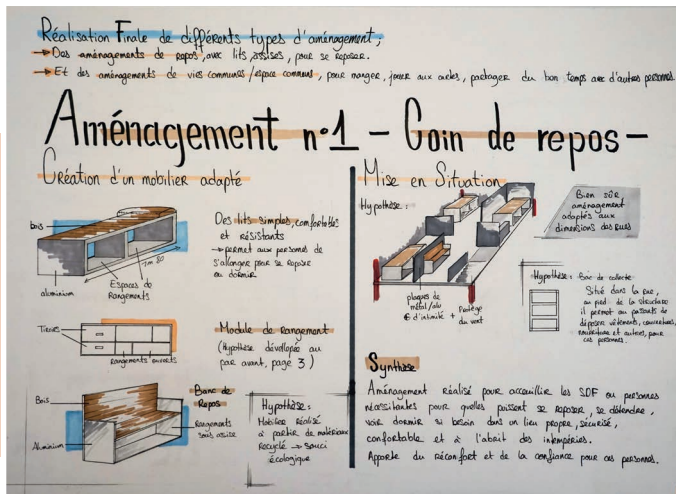 Réalisation Finale de différents types d'aménagement;
→ Des aménagements de repos, avec lits, assises, pour se reposer.
→ Et des aménagements de vies communes / espace communs, pour manger, jouer aux cartes, partager du bon temps avec d'autres personnes.
Aménagement n°1 - Coin de repos -
Création d'un mobilier adapté
bois
aluminium
Espaces de
Rangements
1m 80
Des lits simples, comfortables
et résistants
→ permet aux personnes de
s'allonger pour se reposer
ou dormir
Tiroirs
Rangements ouverts
Module de Rangement
(Hypothèse développée au
par avant, page 3)
Bois
Aluminium
Banc de
Repos
Rangements
sous assise
Hypothèse:
Mobilier Réalisé
à partir de matériaux
Recyclé → souci
écologique
Mise en Situation
Hypothèse:
plaques de
métal/alu
d'intimité + Protège
du vent
Bien sûr
aménagement
adaptés aux
dimensions des Rues
Hypothèse: Bac de collecte
Situé dans la Rue,
au pied de la structure
il permet aux passants de
déposer vêtements, couvertures,
nourriture et autres, pour
ces personnes.
Synthèse
Aménagement réalisé pour acceuillir les SDF ou personnes
nécessitantes pour quelles puissent se reposer, se détendre,
voir dormir si besoin dans un lieu propre, sécurisé,
confortable et à l'abrit des intempéries.
Apporte du réconfort et de la confiance pour ces personnes.